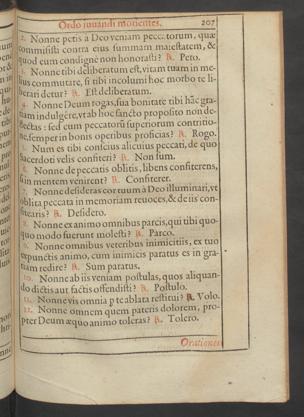 Ordo iuuandi morientes. 207
2. Nonne petis à Deo veniam peccatorum, quæ
commisisti contra eius summam maiestatem, &
quod eum condigne non honorasti? ℟. Peto.
3. Nonne tibi deliberatum est, vitam tuam in me-
lius commutare, si tibi incolumi hoc morbo te li-
berari detur? ℟. Est deliberatum.
4. Nonne Deum rogas, sua bonitate tibi hãc gra-
tiam indulgere, vt ab hoc sancto proposito non de-
flectas: sed cum peccatorũ superiorum contritio-
ne, semper in bonis operibus proficias? ℟. Rogo.
Num es tibi conscius alicuius peccati, de quo
Sacerdoti velis confiteri? ℟. Non sum.
6. Nonne de peccatis oblitis, libens confiterens,
si in mentem venirent? ℟. Confiterer.
7. Nonne desideras cor tuum à Deo illuminari, vt
oblita peccata in memoriam reuoces, & de iis con-
fitearis? ℟. Desidero.
Nonne ex animo omnibus parcis, qui tibi quo-
quo modo fuerunt molesti? ℟. Parco.
9. Nonne omnibus veteribus inimicitiis, ex tuo
expunctis animo, cum inimicis paratus es in gra-
tiam redire? ℟. Sum paratus.
10. Nonne ab iis veniam postulas, quos aliquan-
do dictis aut factis offendisti? ℟. Postulo.
11. Nonne vis omnia p te ablata restitui? ℟. Volo.
12. Nonne omnem quem pateris dolorem, pro-
pter Deum æquo animo toleras? ℟. Tolero.
Orationes